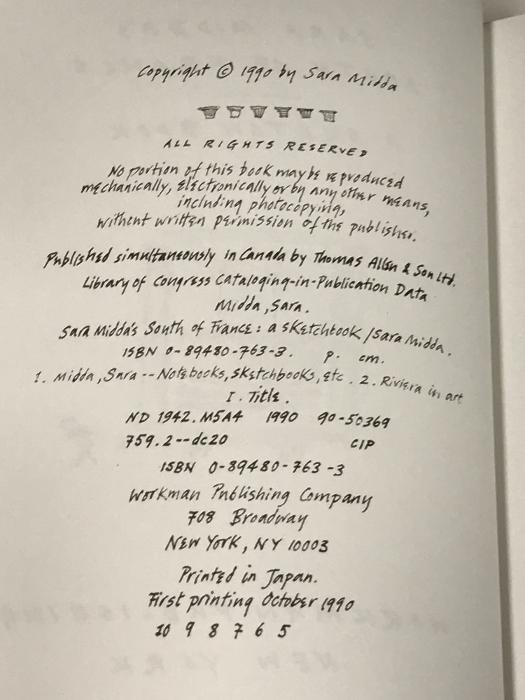 Copyright © 1990 by Sara Midda
ALL RIGHTS RESERVED
No portion of this book may be reproduced
mechanically, electronically or by any other means,
including photocopying,
without written permission of the publisher.
Published simultaneously in Canada by Thomas Allen & Son Ltd.
Library of Congress Cataloging-in-Publication Data
Midda, Sara.
Sara Midda's South of France: a sketchbook / Sara Midda.
ISBN 0-89480-763-3. p. cm.
1. Midda, Sara -- Notebooks, sketchbooks, etc. 2. Riviera in art
I. Title.
ND 1942.M5A4 1990 90-50369
759.2--dc20 CIP
ISBN 0-89480-763-3
Workman Publishing Company
708 Broadway
New York, NY 10003
Printed in Japan.
First printing October 1990
10 9 8 7 6 5